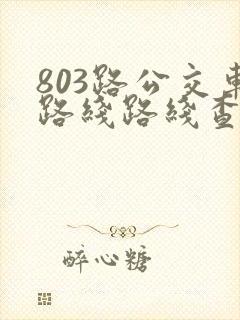 803路公交車
路綫路綫查
醉心糖